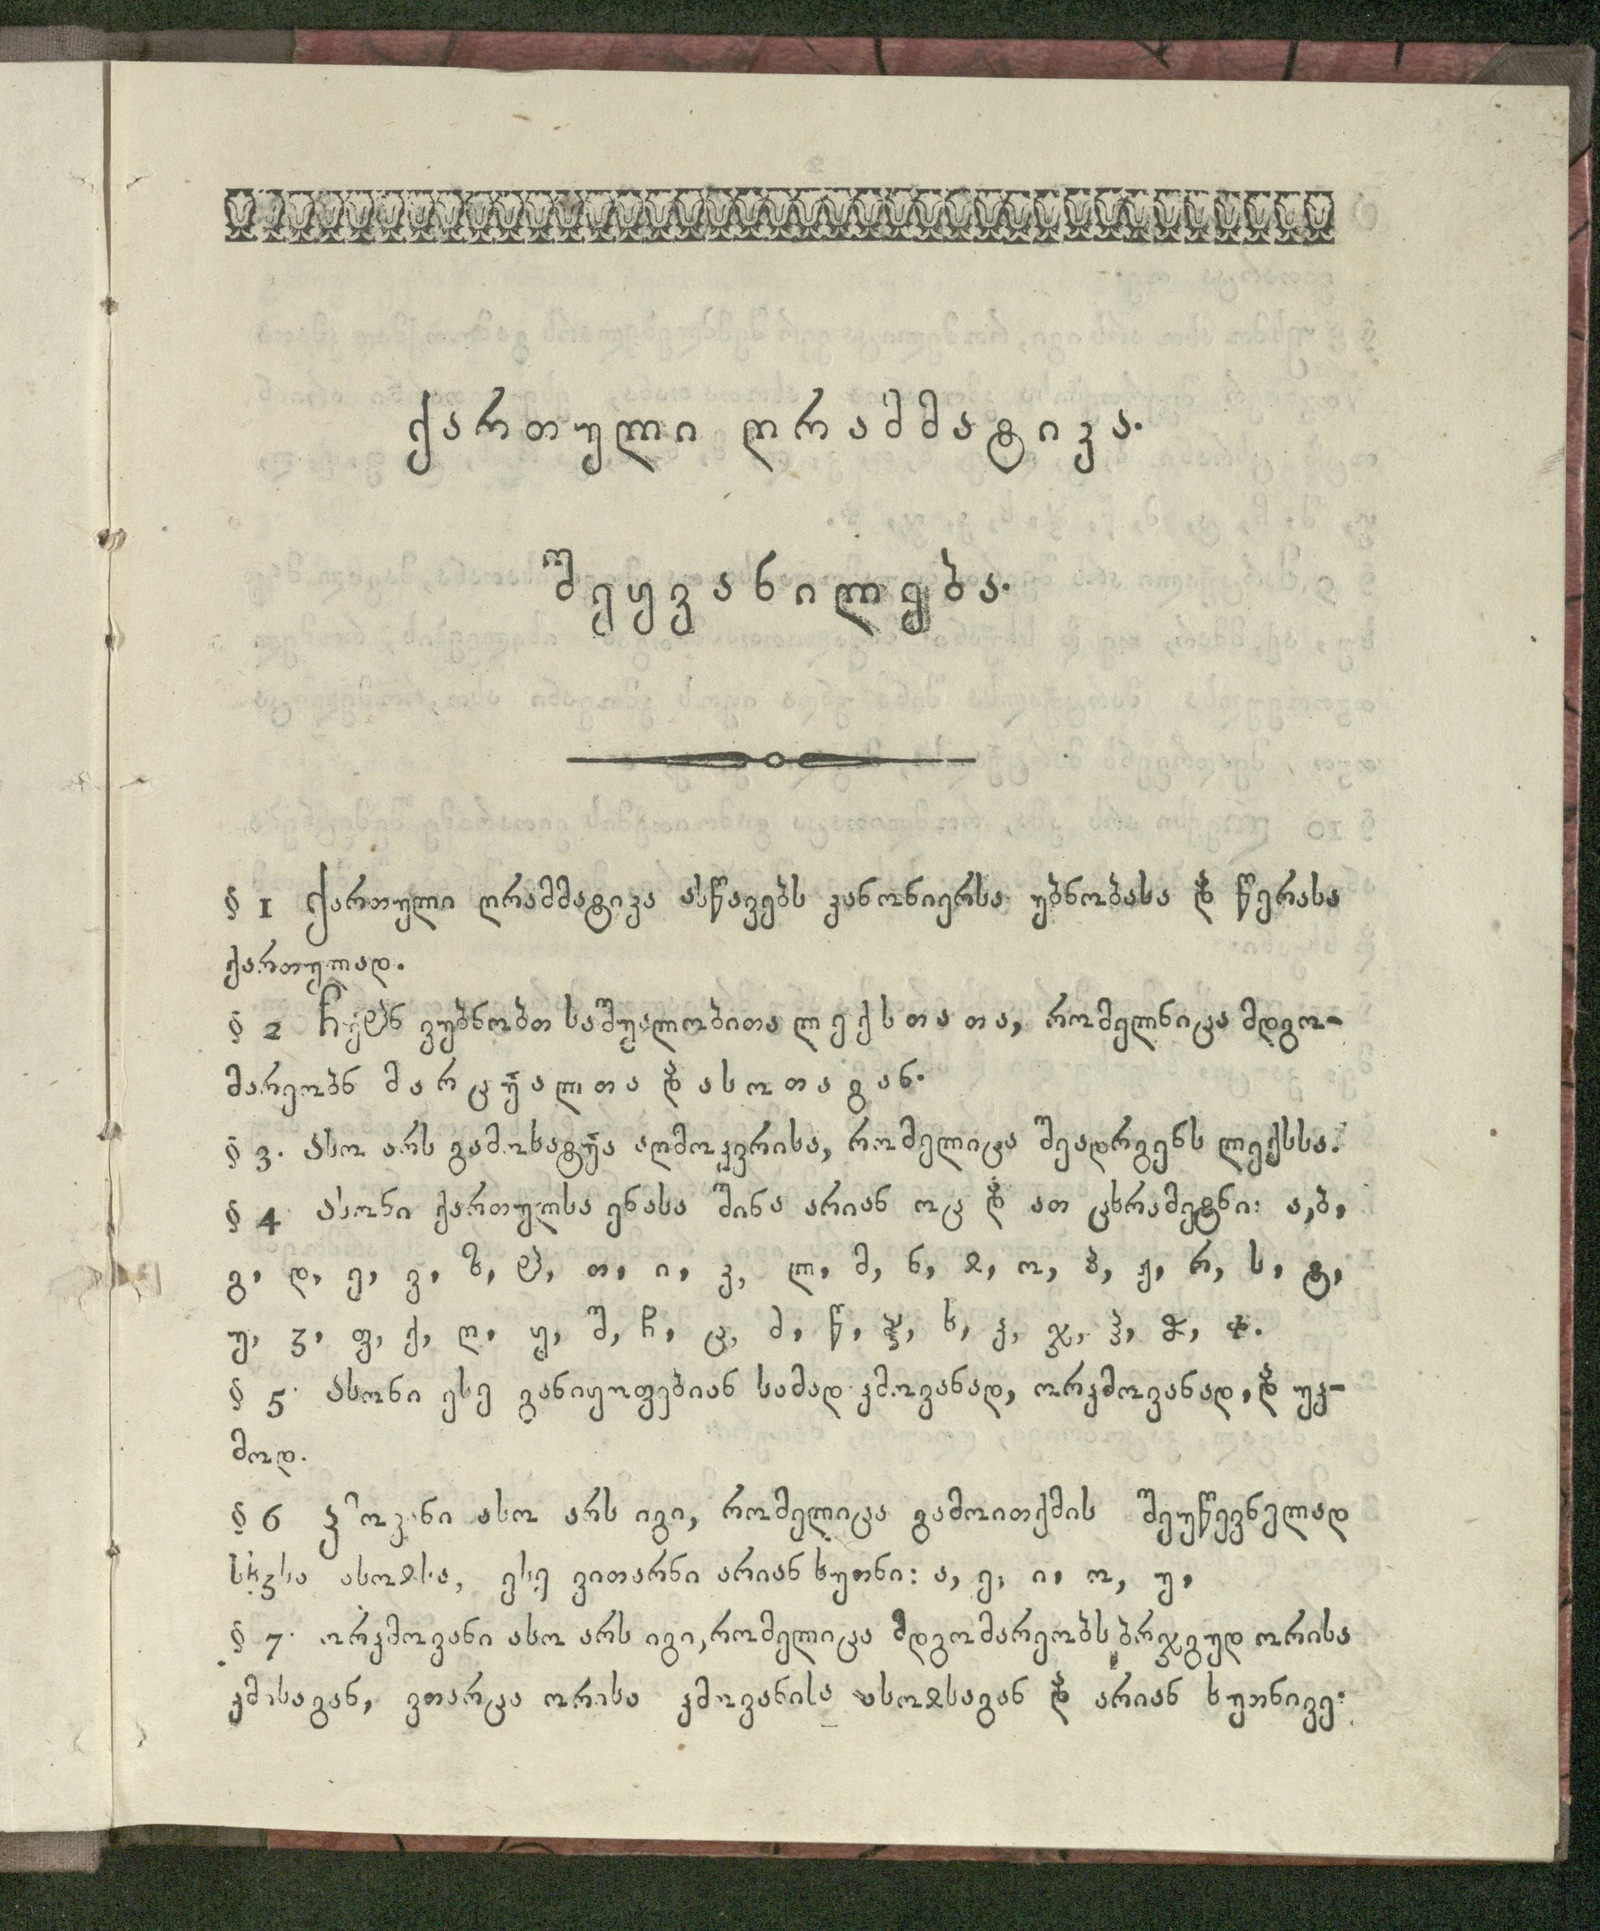 ქართული ღრამმატიკა.
შეყვანილება.
§ 1 ქართული ღრამმატიკა ასწავებს კანონიერსა უბნობასა დ~ წერასა
ქართულად.
§ 2 ჩჱნ ვუბნობთ საშუალობითა ლექსთათა, რომელნიცა მდგო-
მარეობნ მარცუ̂ალთა დ~ ასოთაგან.
§ 3. ასო არს გამოხატუ̂ა აღმოკვრისა, რომელიცა შეადრგენს ლექსსა.
§ 4 ასონი ქართულსა ენასა შინა არიან ოც დ~ ათ ცხრამეტნი: ა, ბ,
გ, დ, ე, ვ, ზ, ჱ, თ, ი, კ, ლ, მ, ნ, ჲ, ო, პ, ჟ, რ, ს, ტ,
უ, ჳ, ფ, ქ, ღ, ყ, შ, ჩ, ც, ძ, წ, ჭ, ხ, ჴ, ჯ, ჰ, ჵ, ჶ.
§ 5. ასონი ესე განიყოფებიან სამად ჴმოვანად, ორჴმოვანად, დ~ უჴ-
მოდ.
§ 6 ჴმოვანი ასო არს იგი, რომელიცა გამოითქმის შეუწევნელად
სხჳსა ასოჲსა, ესე ვითარნი არიან ხუთნი: ა, ე, ი, ო, უ,
§ 7. ორჴმოვანი ასო არს იგი, რომელიცა მდგომარეობს ბრჯგუდ ორისა
ჴმისაგან, ვთარცა ორისა ჴმოვანისა ასოჲსაგან დ~ არიან ხუთნივე: